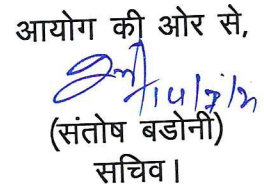 आयोग की ओर से,
(संतोष बडोनी)
सचिव।